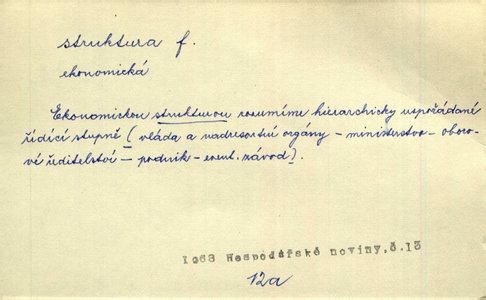 struktura f.
ekonomická
Ekonomickou strukturou rozumíme hierarchicky uspořádané
řídící stupně ( vláda a nadresortní orgány – ministerstvo – oboro-
vé ředitelství – podnik – event. závod ).
1968 Hospodářské noviny, č.13
12a